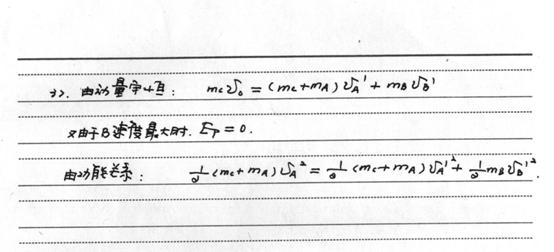 (3). 由动量守恒: mcv₀ = (mc+mA)vA' + mBvB'
又由于B速度最大时. Ep = 0.
由功能关系: 1/2(mc+mA)vA² = 1/2(mc+mA)vA'² + 1/2mBvB'².